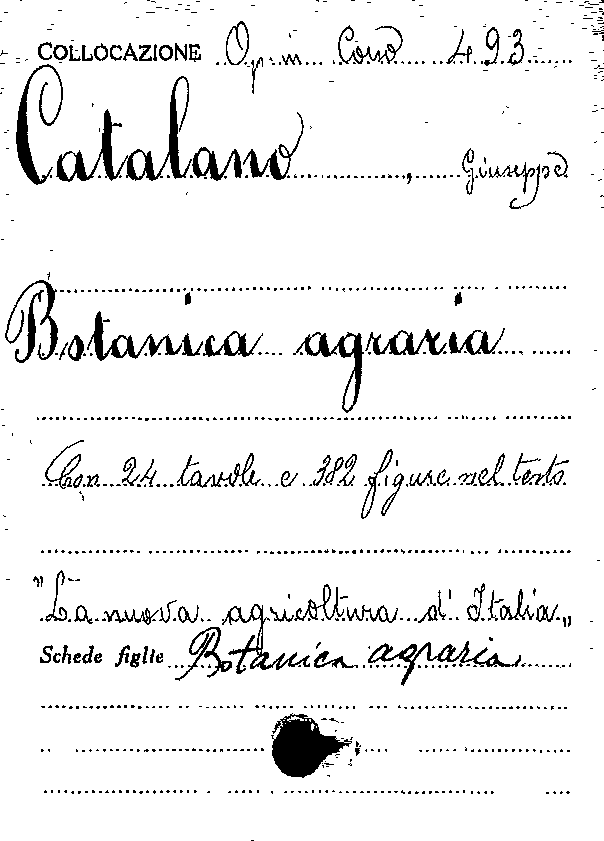 COLLOCAZIONE Op. in Cons 493
Catalano, Giuseppe
Botanica agraria
Con 24 tavole e 382 figure nel testo
"La nuova agricoltura d'Italia„
Schede figlie Botanica agraria